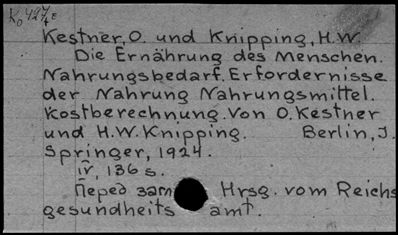 Kestner, O. und Knipping, H.W.
Die Ernährung des Menschen.
Nahrungsbedarf. Erfordernisse
der Nahrung Nahrungsmittel.
Kostberechnung. Von O. Kestner
und H.W. Knipping. Berlin, J.
Springer, 1924.
IV, 136 s.
Перед заг Hrsg. vom Reichs
gesundheits amt.